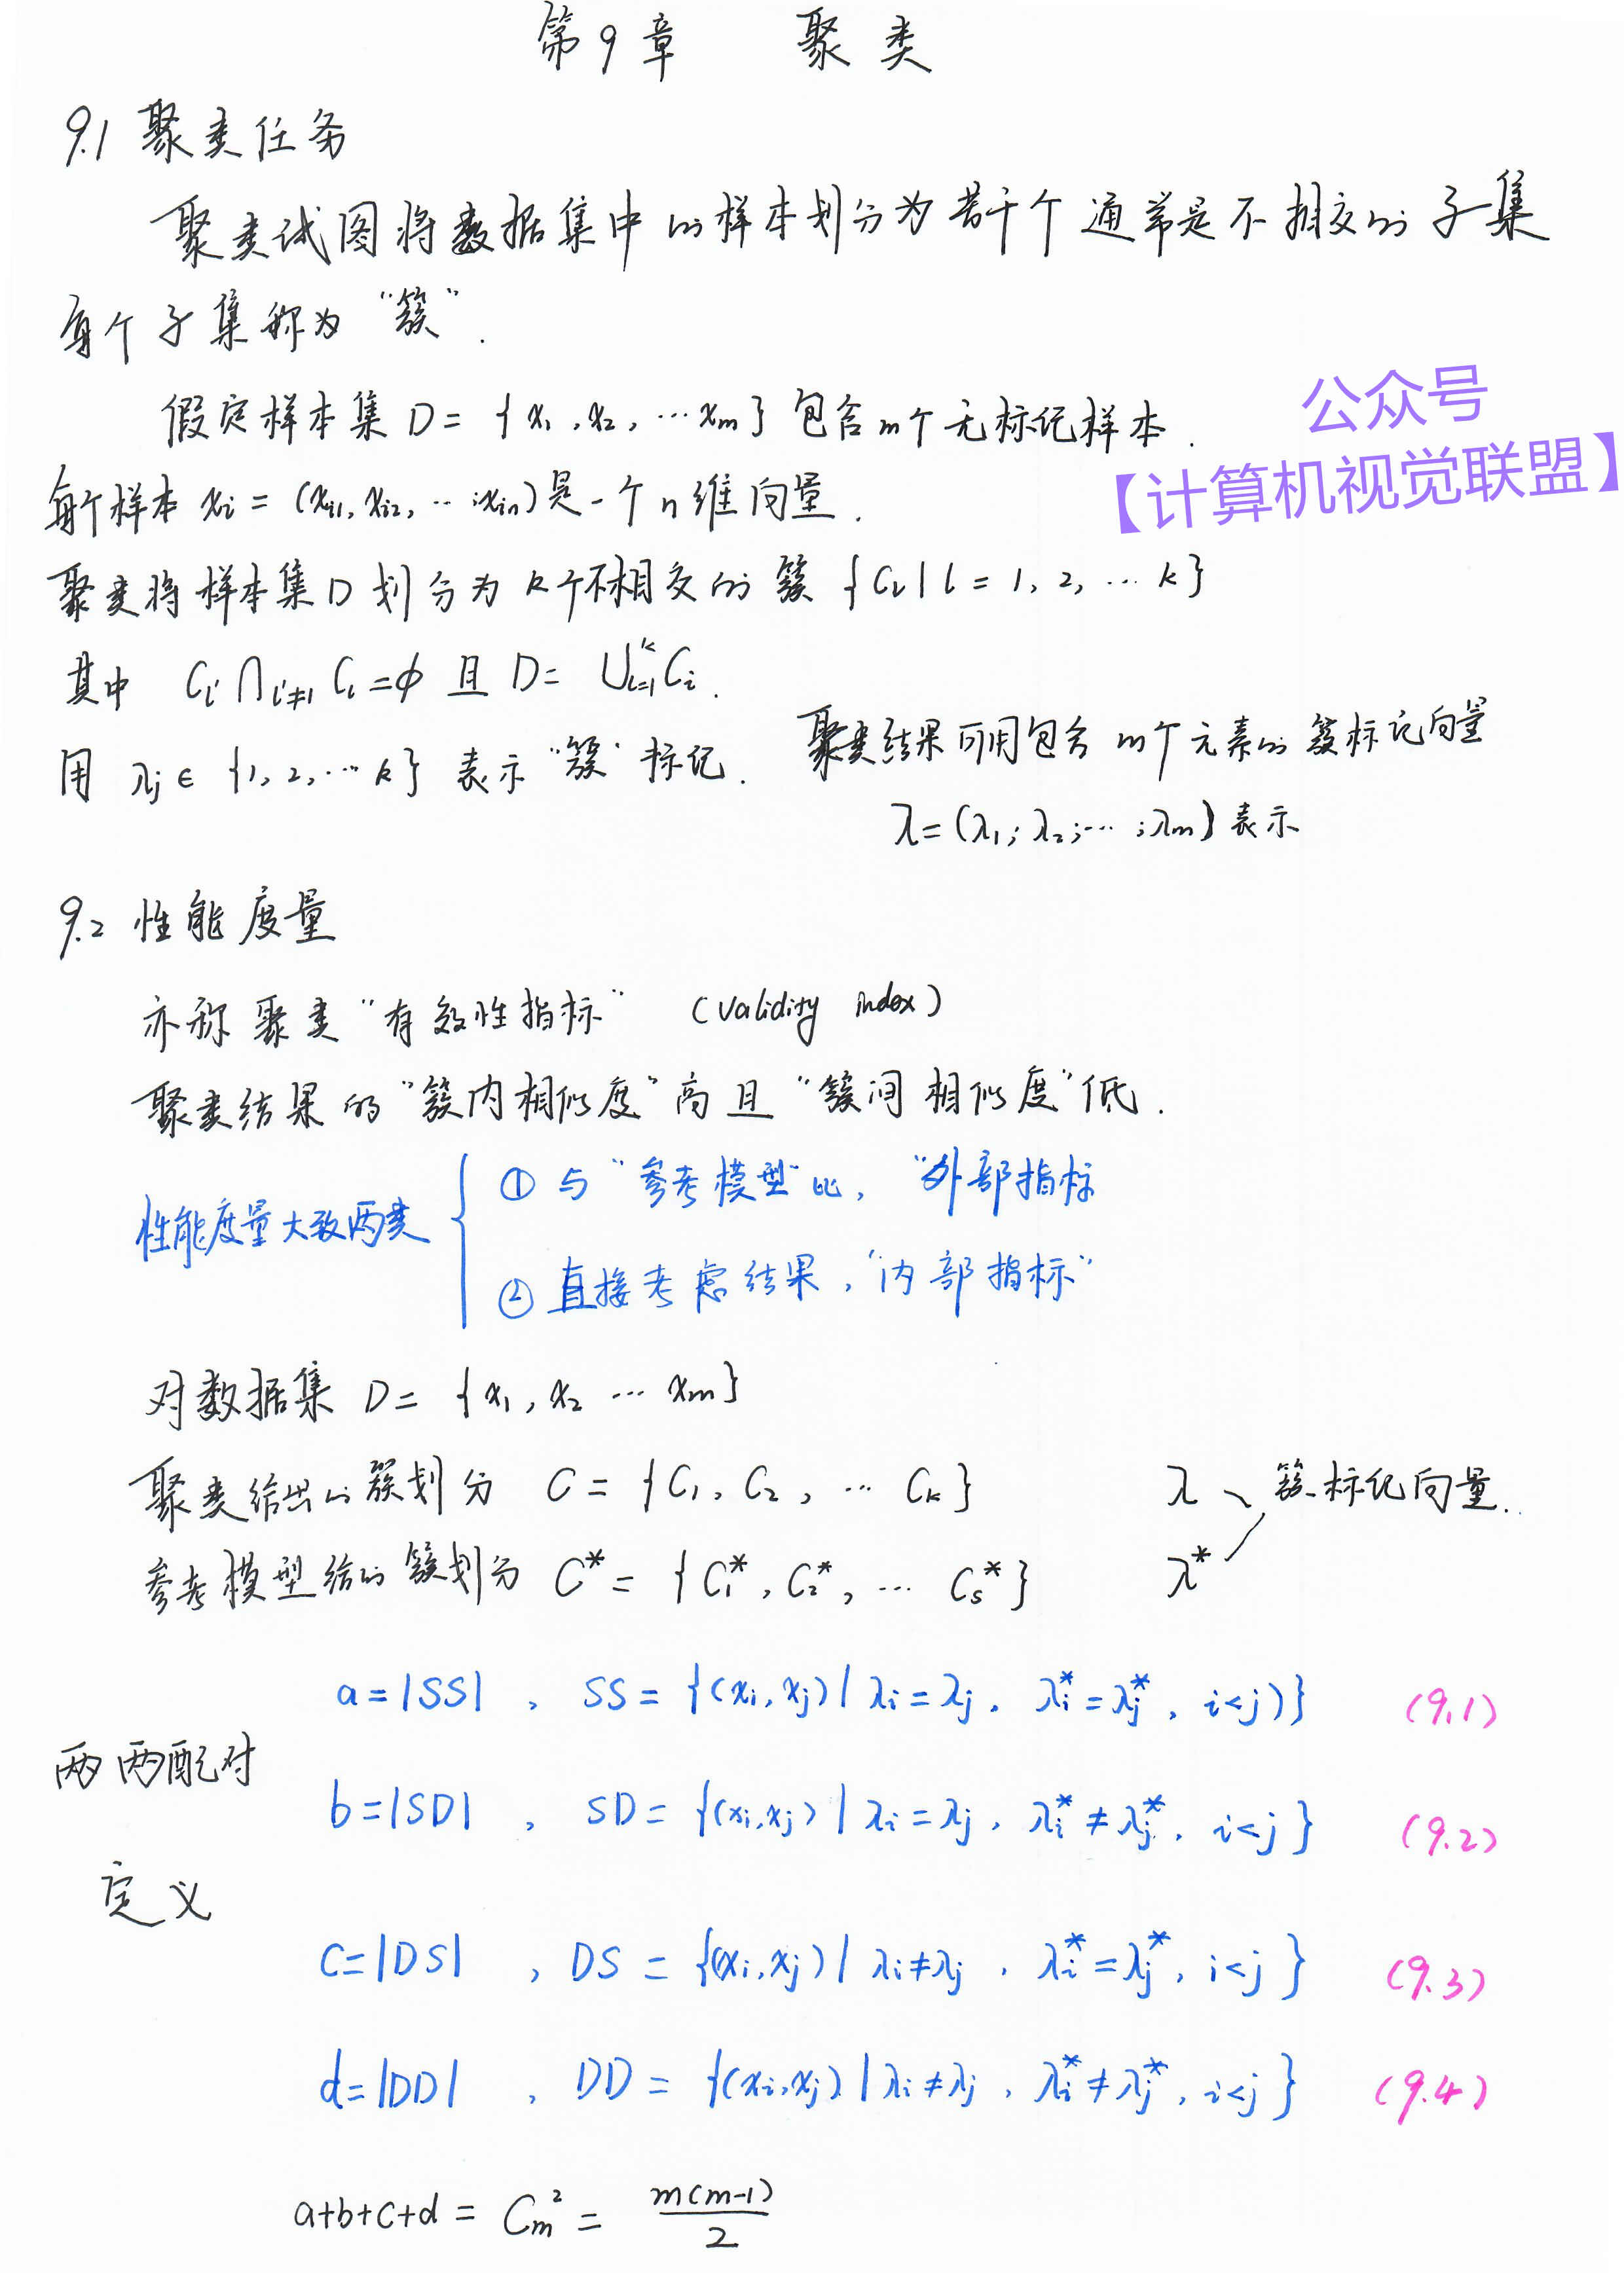 第9章 聚类
9.1 聚类任务
聚类试图将数据集中的样本划分为若干个通常是不相交的子集
每个子集称为“簇”.
假定样本集 D= {x₁,x₂,…xₘ} 包含m个无标记样本.
公众号
【计算机视觉联盟】
每个样本 xᵢ = (xᵢ₁, xᵢ₂, … ;xᵢₙ) 是一个n维向量.
聚类将样本集D划分为k个不相交的簇 {Cₗ | l = 1, 2, … k}
其中 Cₗ' ⋂ₗ'≠ₗ Cₗ =ϕ 且 D= ⋃ₗ₌₁ᵏ Cᵢ.
用 λⱼ∈ {1, 2, … k} 表示“簇”标记.
聚类结果可用包含m个元素的簇标记向量
λ= (λ₁; λ₂;… ;λₘ) 表示
9.2 性能度量
亦称聚类“有效性指标” (validity index)
聚类结果的“簇内相似度”高且“簇间相似度”低.
性能度量大致两类
① 与“参考模型”比, “外部指标
② 直接考虑结果, “内部指标”
对数据集 D= {x₁, x₂ … xₘ}
聚类给出的簇划分 C = {C₁, C₂, … Cₖ} λ 簇标记向量.
参考模型给的簇划分 C* = {C₁*, C₂*, … Cₛ*} λ*
a=|SS| , SS= {(xᵢ, xⱼ) | λᵢ=λⱼ, λᵢ*=λⱼ*, i<j)} (9.1)
两两配对
b=|SD| , SD= {(xᵢ,xⱼ) | λᵢ=λⱼ, λᵢ*≠λⱼ*, i<j } (9.2)
定义
C=|DS| , DS = {(xᵢ,xⱼ) | λᵢ≠λⱼ , λᵢ*=λⱼ*, i<j } (9.3)
d=|DD| , DD = {(xᵢ,xⱼ) | λᵢ≠λⱼ , λᵢ*≠λⱼ*, i<j } (9.4)
a+b+c+d = Cₘ² = m(m-1)/2